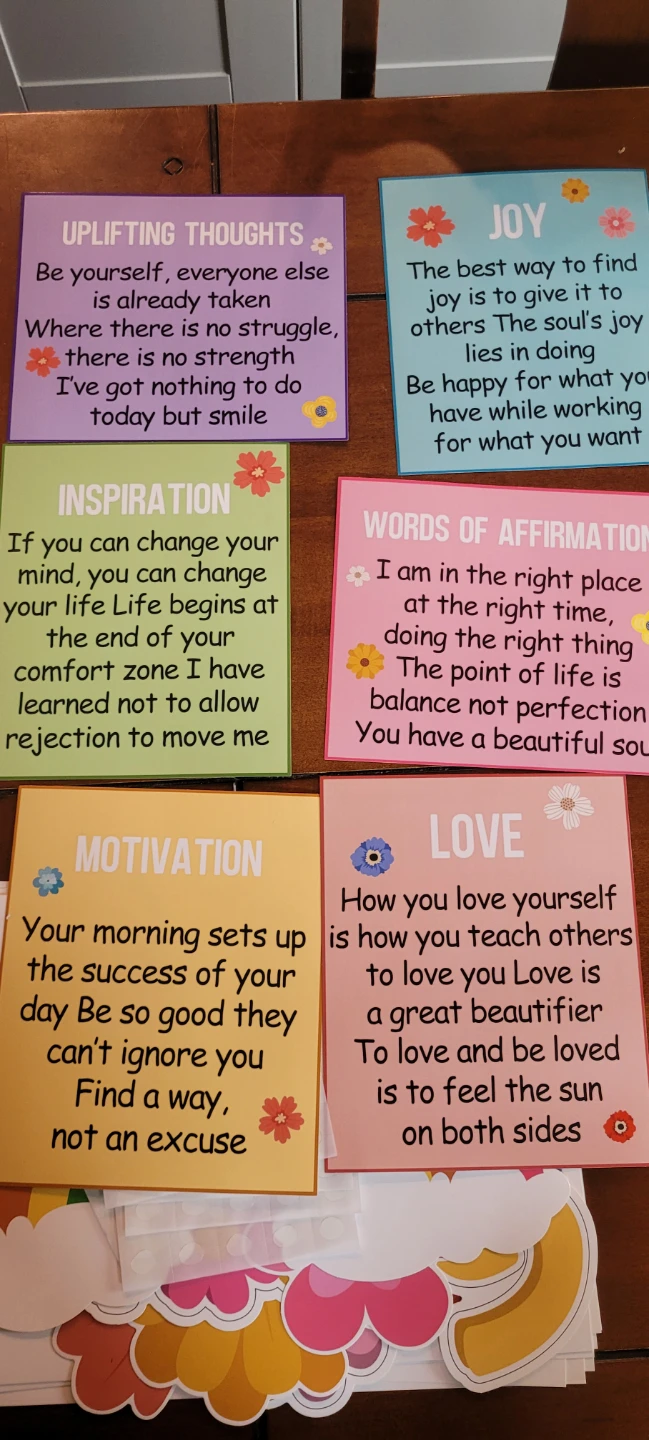 UPLIFTING THOUGHTS
Be yourself, everyone else
is already taken
Where there is no struggle,
there is no strength
I've got nothing to do
today but smile
JOY
The best way to find
joy is to give it to
others The soul's joy
lies in doing
Be happy for what
have while working
for what you want
INSPIRATION
If you can change your
mind, you can change
your life Life begins at
the end of your
comfort zone I have
learned not to allow
rejection to move me
WORDS OF AFFIRMATION
I am in the right place
at the right time,
doing the right thing
The point of life is
balance not perfection
You have a beautiful
MOTIVATION
Your morning sets up
the success of your
day Be so good they
can't ignore you
Find a way,
not an excuse
LOVE
How you love yourself
is how you teach others
to love you Love is
a great beautifier
To love and be loved
is to feel the sun
on both sides